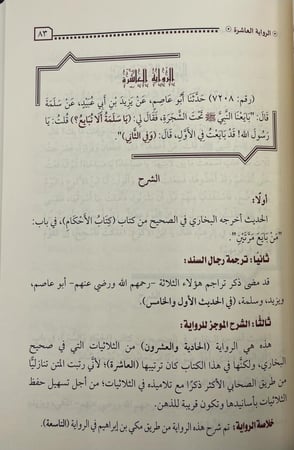 الرواية العاشرة
٨٣
الرواية العاشرة
(رقم: ٧٢٠٨) حَدَّثَنَا أَبُو عَاصِمٍ، عَنْ يَزِيدَ بْنِ أَبِي عُبَيْدٍ، عَنْ سَلَمَةَ
قَالَ: "بَايَعْنَا النَّبِيَّ ﷺ تَحْتَ الشَّجَرَةِ، فَقَالَ لِي: (يَا سَلَمَةُ أَلَا تُبَايِعُ؟) قُلْتُ: يَا
رَسُولَ اللهِ! قَدْ بَايَعْتُ فِي الْأَوَّلِ، قَالَ: (وَفِي الثَّانِي)".
الشرح
أولًا:
الحديث أخرجه البخاري في الصحيح من كتاب (كِتَابُ الأَحْكَامِ)، في باب:
"مَنْ بَايَعَ مَرَّتَيْنِ".
ثانيًا: ترجمة رجال السند:
قد مضى ذكر تراجم هؤلاء الثلاثة -رحمهم الله ورضي عنهم- أبو عاصم،
ويزيد، وسلمة، (في الحديث الأول والخامس).
ثالثًا: الشرح الموجز للرواية:
هذه هي الرواية (الحادية والعشرون) من الثلاثيات التي في صحيح
البخاري، ولكنَّها في هذا الكتاب كان ترتيبها (العاشرة)؛ لأنِّي رتبت المتن تنازليًّا
من طريق الصحابي الأكثر ذكرًا مع تلاميذه في الثلاثيات؛ من أجل تسهيل حفظ
الثلاثيات بأسانيدها وتكون قريبة للذهن.
خلاصة الرواية: تم شرح هذه الرواية من طريق مكي بن إبراهيم في الرواية (التاسعة).